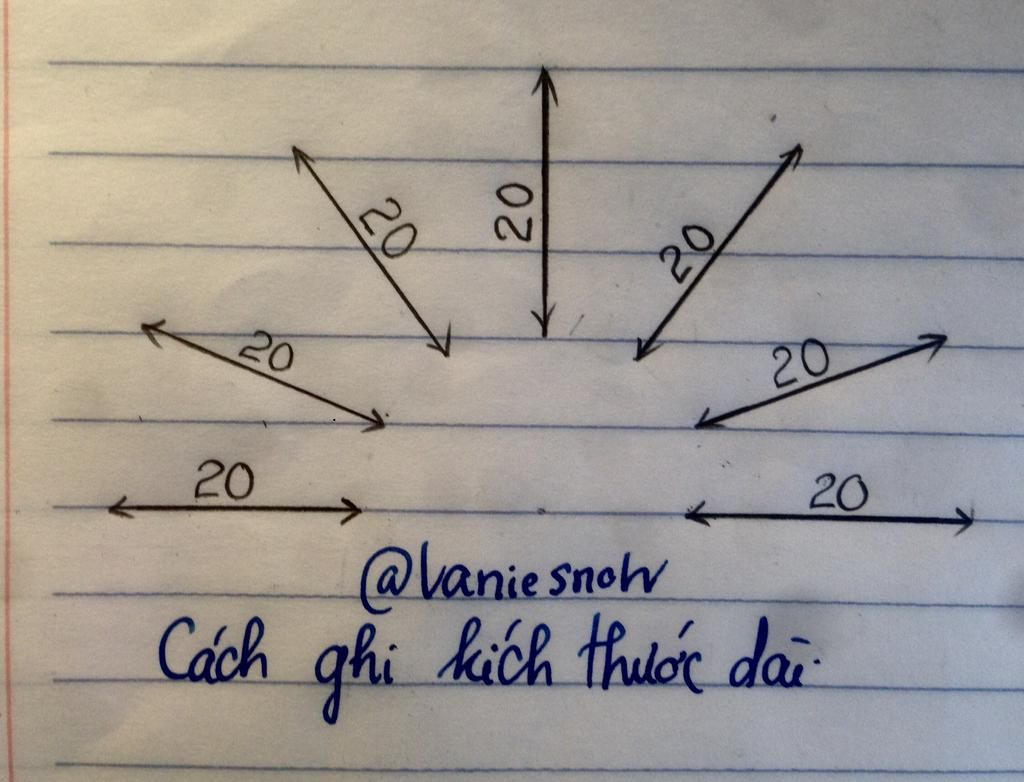 20
20 20
20 20
20 20
@vaniesnow
Cách ghi kích thước dài.